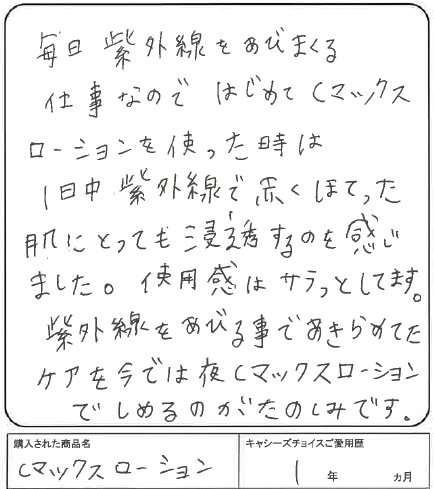 毎日 紫外線をあびまくる
仕事なので はじめてCマックス
ローションを使った時は
1日中 紫外線で 赤くほてった
肌にとっても浸透するのを感じ
ました。使用感はサラっとしてます。
紫外線をあびる事であきらめてた
ケアを今では夜Cマックスローション
でしめるのがたのしみです。
購入された商品名
Cマックスローション
キャシーズチョイスご愛用歴
1 年 ヵ月